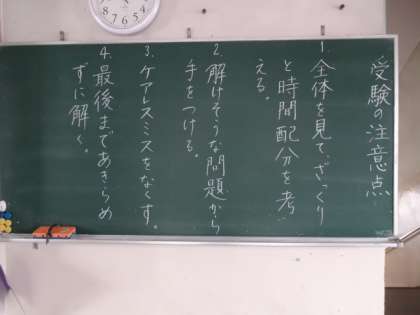 受験の注意点
1.全体を見て、ざっくり
と時間配分を考
える。
2.解けそうな問題から
手をつける。
3.ケアレスミスをなくす。
4.最後まであきらめ
ずに解く。